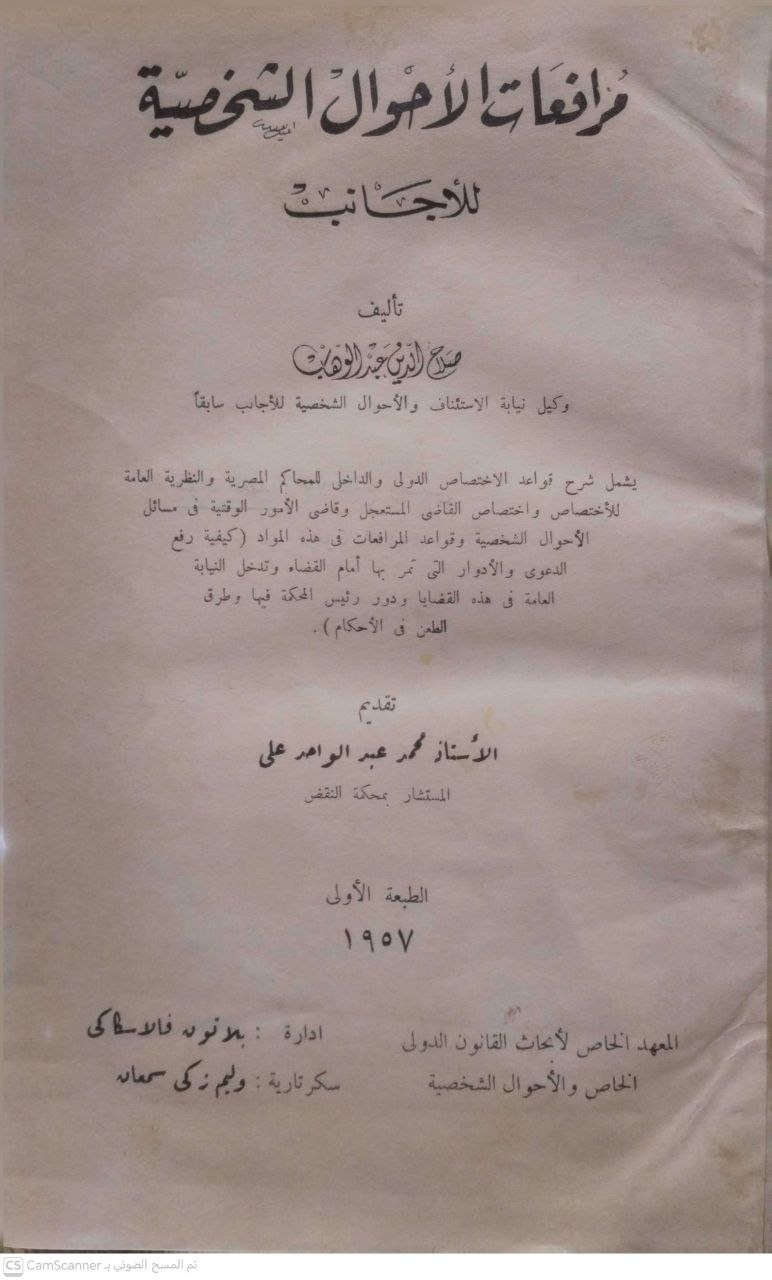 مُرافعَات الأحْوال الشخصيّة
للأجَانبْ
تأليف
صلاح الدين عبد الوهاب
وكيل نيابة الاستئناف والأحوال الشخصية للأجانب سابقاً
يشمل شرح قواعد الاختصاص الدولى والداخلى للمحاكم المصرية والنظرية العامة
للأختصاص واختصاص القاضى المستعجل وقاضى الأمور الوقتية فى مسائل
الأحوال الشخصية وقواعد المرافعات فى هذه المواد (كيفية رفع
الدعوى والأدوار التى تمر بها أمام القضاء وتدخل النيابة
العامة فى هذه القضايا ودور رئيس المحكمة فيها وطرق
الطعن فى الأحكام).
تقديم
الأستاذ محمد عبد الواحد على
المستشار بمحكمة النقض
الطبعة الأولى
١٩٥٧
المعهد الخاص لأبحاث القانون الدولى
الخاص والأحوال الشخصية
ادارة : بلاتون فالاسكاكى
سكرتارية : وليم زكى سمعان
CS CamScanner تم المسح الضوئي بـ